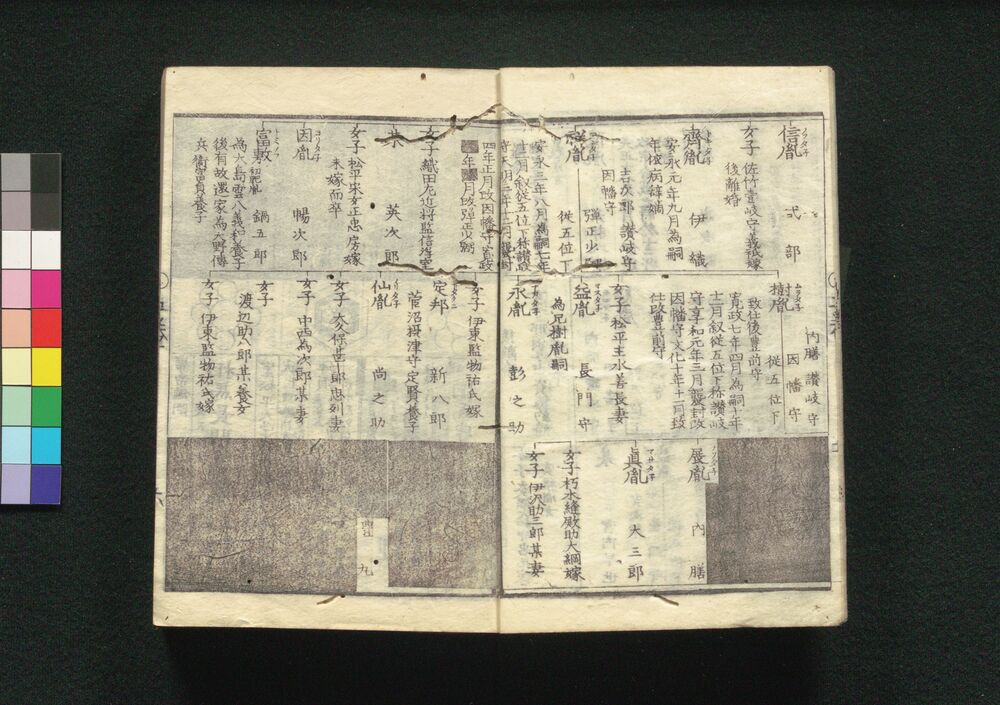 信胤 式部
女子 佐竹壹岐守義祗嫁
後離婚
齊胤 伊織
安永元年九月為嗣
年依病辞嫡
吉次郎 讃岐守
因幡守
胤 弾正少弼
従五位下
安永三年八月為嗣七年
十二月叙従五位下称讃岐
四年正月改因幡守寛政
年 月改弾正少弼
女子 織田左近将監信
英次郎
女子 松平采女正忠房嫁
未嫁而卒
因胤 暢次郎
富敷 初胤 鍋五郎
為大島雲八義和養子
後有故還家為大野傳
兵衛富貞養子
内膳 讃岐守
樹胤 因幡守
従五位下
致仕後豊前守
寛政七年四月為嗣十年
十二月叙従五位下称讃岐
守享和元年三月襲封改
因幡守文化十年十二月致
仕改豊前守
女子 松平主水善長妻
益胤 長門守
為兄樹胤嗣
永胤 彭之助
女子 伊東監物祐氏嫁
定邦 新八郎
菅沼摂津守定賢養子
仙胤 尚之助
女子 大久保甚十郎忠列妻
女子 中西為次郎某妻
女子
渡辺助八郎某養女
女子 伊東監物祐氏嫁
胤 内膳
眞胤 大三郎
女子 朽木縫殿助大綱嫁
女子 伊沢助三郎某妻
豊丸